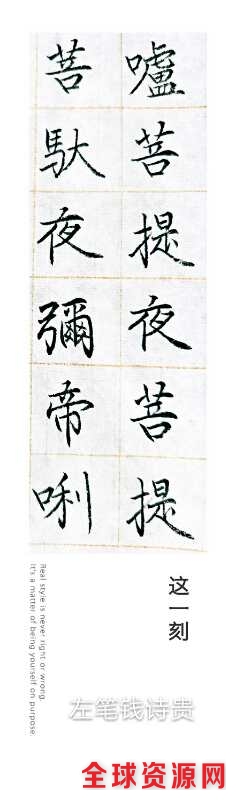 嚧菩提夜菩提
菩馱夜彌帝唎
这一刻
Real style is never right or wrong
It's a matter of being yourself on purpose.
左笔钱诗贵
全球资源网